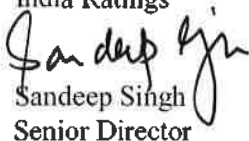 India Ratings
Sandeep Singh
Sandeep Singh
Senior Director